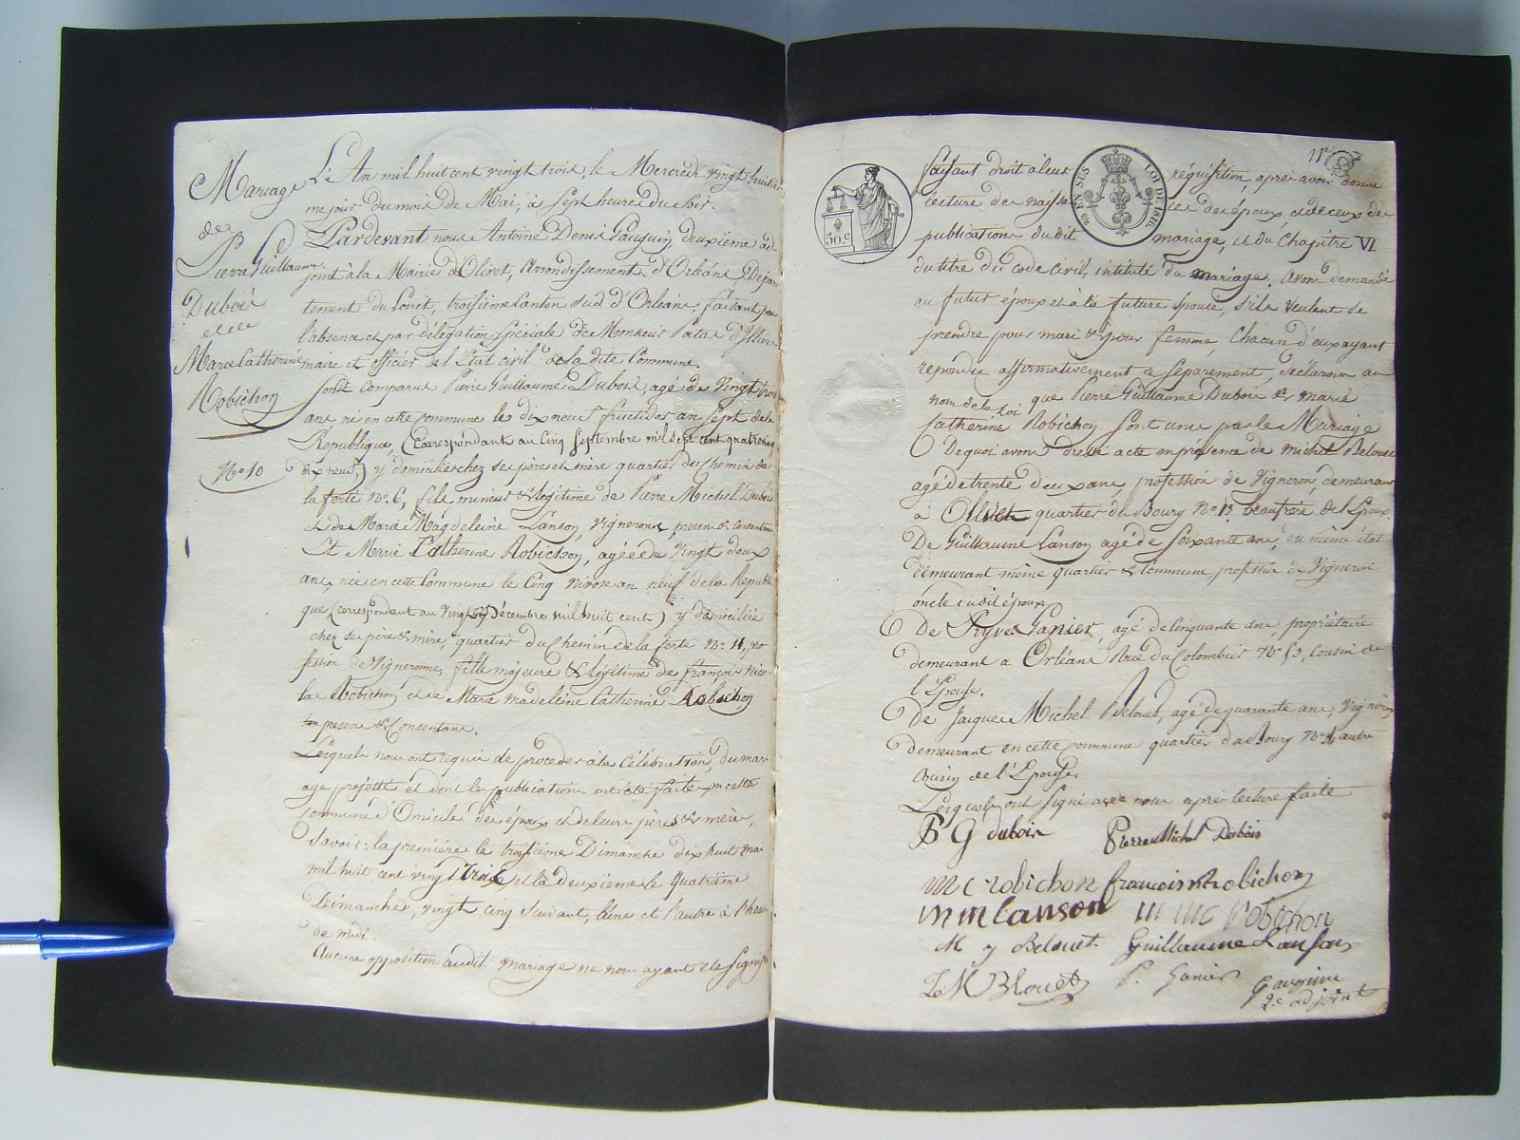 Mariage
de
Pierre Guillaume
Dubois
et de
Marie Catherine
Robichon
No 10
L'An mil huit cent vingt trois, le Mercredi vingt huitie-
me jour du mois de Mai, à Sept heures du Soir.
Pardevant nous Antoine Denis Gauguin deuxième ad
joint à la Mairie d'Olivet, Arrondissement d'Orléans, Dépar
tement du Loiret, troisième Canton Sud d'Orléans, faisant pour
l'absence et par délégation spéciale de Monsieur
maire et officier de l'Etat civil de la dite Commune.
Sont comparus Pierre Guillaume Dubois, agé de Vingt trois
ans né en cette commune le dix neuf fructidor an sept de la
Republique, (Correspondant au Cinq Septembre mil sept cent quatrevingt
dix neuf) y demeurant chez ses père et mère quartier du Chemin de
la ferté No. 6, fils mineur & légitime de Pierre Michel Dubois
& de Marie Magdeleine Lanson, vignerons, présens & consentans
Et Marie Catherine Robichon, agée de Vingt deux
ans, née en cette Commune le Cinq Nivose an neuf de la Republi
que (correspondant au vingt six Décembre mil huit cent) y domiciliée
chez ses père & mère, quartier du Chemin de la ferté No. 11, pro
fession de Vigneronne, fille majeure & légitime de françois Nico
las Robichon et de Marie Madeleine Catherine Robichon
presens & Consentans.
Lesquels nous ont requis de proceder à la Célébration du mari
age projetté et dont les publications ont été faites en cette
commune Domicile des époux et de leurs pères & mères,
Savoir: la première le troisième Dimanche dix huit mai
mil huit cent vingt trois et la deuxième le quatrième
Dimanche, vingt cinq suivant, l'une et l'autre à l'heure
de midi.
Aucune opposition audit mariage ne nous ayant été signifiée
50 c
EN SUS
LOI DE 1816
faisant droit à leur réquisition, après avoir donné
lecture des naissances des époux, et de ceux de
publications du dit mariage, et du Chapitre VI
du titre du code civil, intitulé du mariage. Avons demandé
au futur époux et à la future épouse, s'ils veulent se
prendre pour mari & pour femme, Chacun d'eux ayant
repondu affirmativement & séparement, déclarons au
nom de la Loi que Pierre Guillaume Dubois & marie
Catherine Robichon sont unis par le Mariage
De quoi avons dressé acte en présence de michel Belouet
agé de trente deux ans, profession de Vigneron, demeurant
à Olivet quartier du Bourg No beaufrère de l'Epoux.
De Guillaume Lanson agé de Soixante ans, du même état
demeurant même quartier & commune profession de Vigneron
oncle audit époux
De Ganier, agé de Cinquante ans, propriétaire
demeurant à Orléans Rue du Colombier No 59, Cousin de
l'Epouse.
De Jacques Michel Belouet, agé de quarante ans, Vigneron
demeurant en cette commune quartier du Bourg No autre
Cousin de l'Epouse.
Lesquels ont signé avec nous après lecture faite
P G dubois Pierre Michel Dubois
m c robichon francois n robichon
m m lanson m mc robichon
M J Belouet Guillaume Lanson
J M Blouet P. Ganier Gauguin
2e adjoint